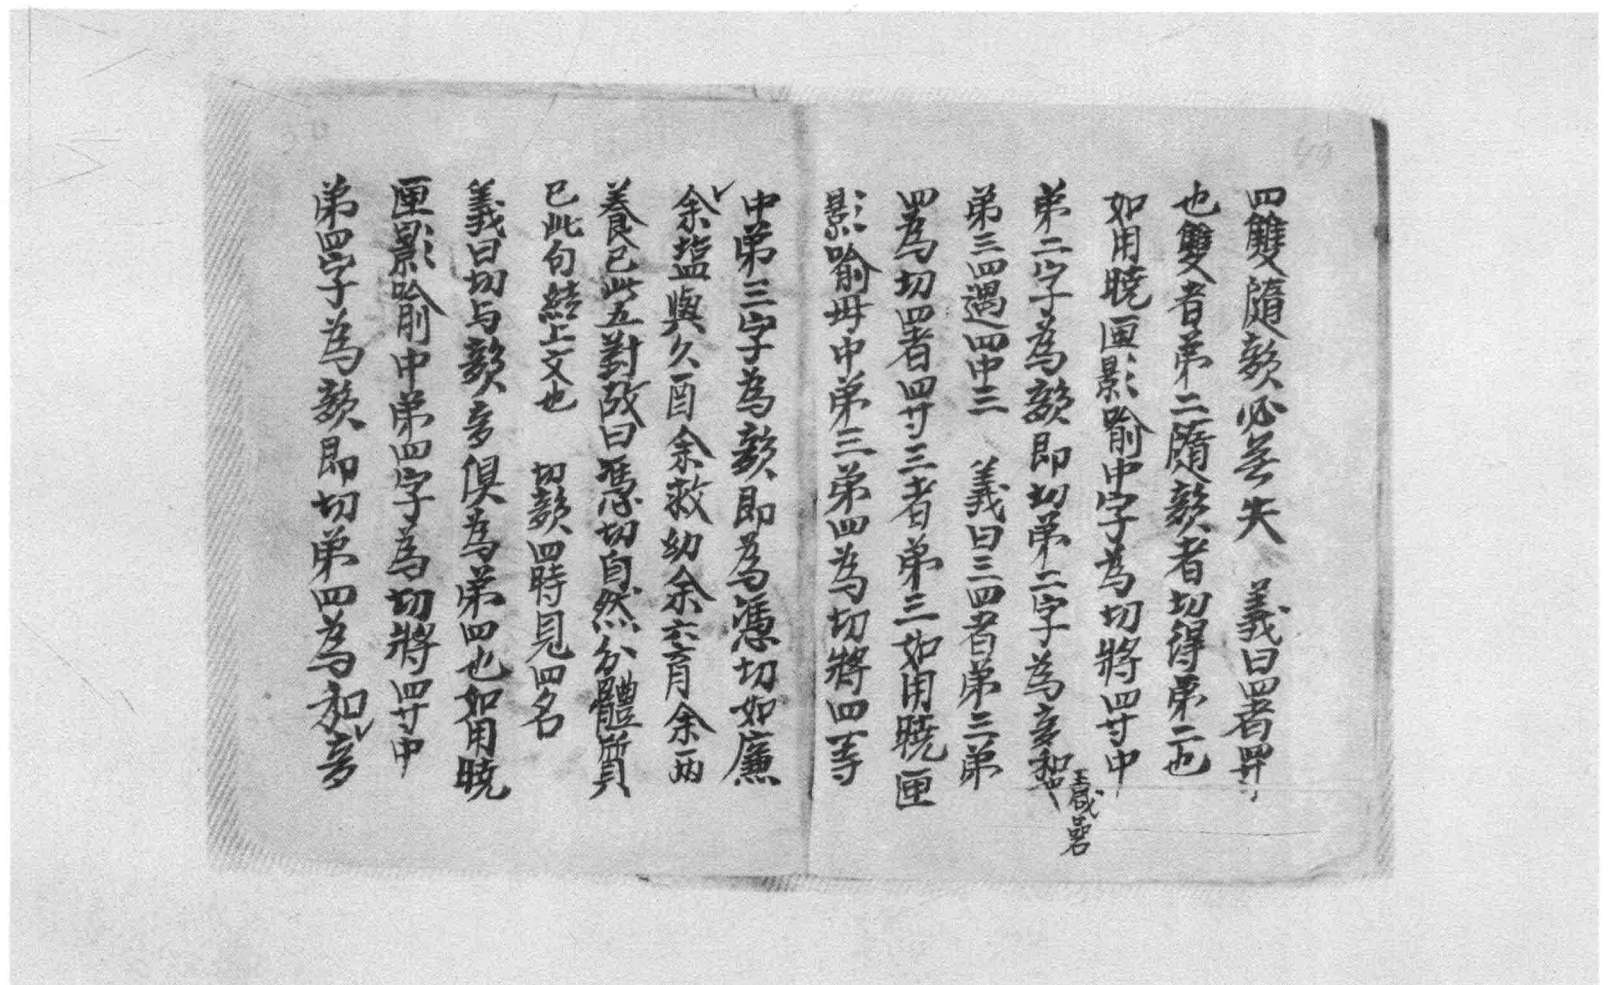 四雙隨韻必無失　義曰四者四等
也雙者第二隨韻者切得第二也
如用曉匣影喻中字為切將四等中
第二字為韻即切第二字為音和
王咸嵒
第三四遇四中三　義曰三四者第三第
四為切四者四等三者第三如用曉匣
影喻母中第三第四為切將四等
中第三字為韻即為憑切如廉
余塩與久酉余救幼余六育余兩
養已此五對故曰憑切自然分體質
已此句結上文也　切韻四時見四名
義曰切与韻音俱為第四也如用曉
匣影喻中第四字為切將四等中
第四字為韻即切第四為和音